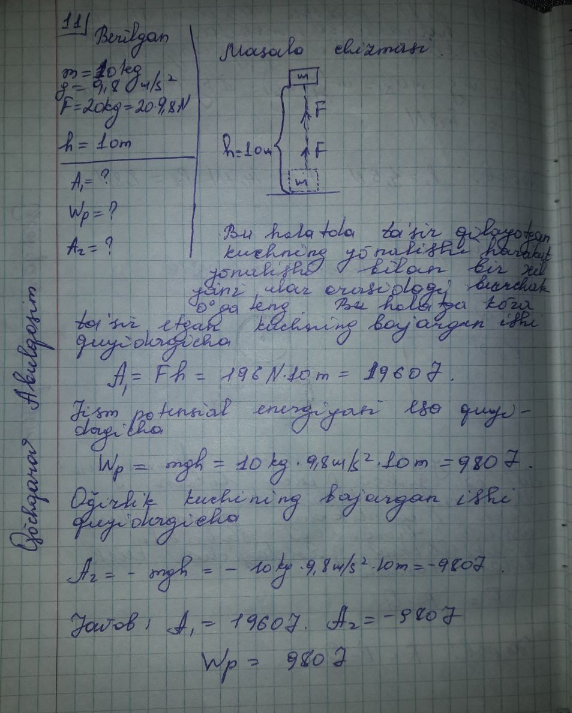 11) Berilgan
m = 10kg
g = 9,8 m/s²
F = 20kg = 20 9,8N
h = 10m
A₁ = ?
Wp = ?
A₂ = ?
Masala chizmasi
m
F
h=10m
F
m
Bu holatda ta'sir qilayotgan
kuchning yo'nalishi harakat
yo'nalishi bilan bir xil
yani ular orasidagi burchak
0° ga teng Bu holatga ko'ra
ta'sir etgan kuchning bajargan ishi
quyidagicha
A₁ = Fh = 196N·10m = 1960J.
Jism potensial energiyasi esa quyi-
dagicha
Wp = mgh = 10kg·9,8m/s²·10m = 980J.
Og'irlik kuchining bajargan ishi
quyidagicha
A₂ = - mgh = - 10kg·9,8m/s²·10m = -980J.
Javob: A₁ = 1960J. A₂ = -980J
Wp = 980J
Qo'chqarov Abulqosim